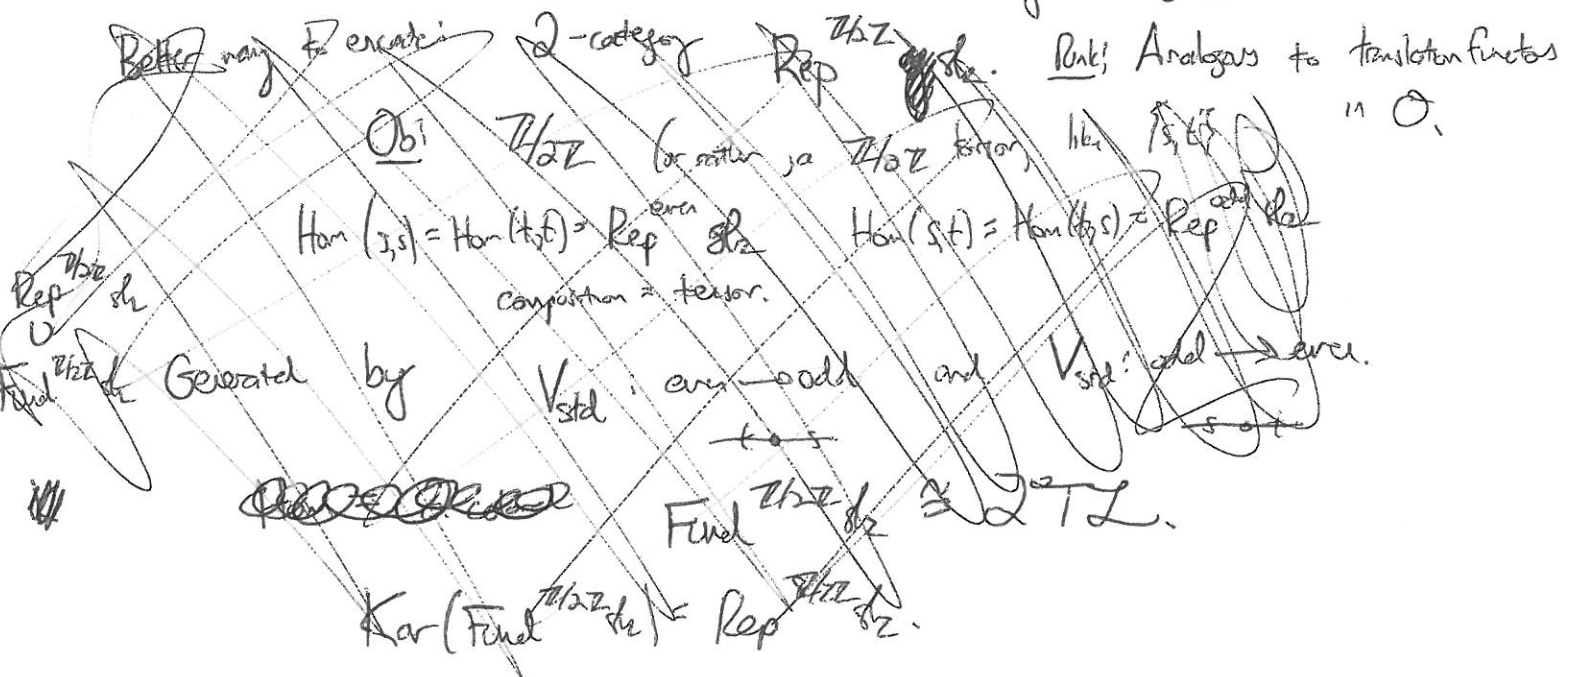 Better way to encode: 2-category Rep^{ℤ/2ℤ} sl_2. Rmk: Analogous to translation functors
in O.
Ob: ℤ/2ℤ (or rather, a ℤ/2ℤ torsor, like {s,t})
Hom(s,s) = Hom(t,t) = Rep^{even} sl_2 Hom(s,t) = Hom(t,s) = Rep^{odd} sl_2
composition = tensor.
Rep^{ℤ/2ℤ} sl_2
∪
Fund^{ℤ/2ℤ} sl_2 Generated by V_{std}: even → odd and V_{std}: odd → even.
t s s t
Fund^{ℤ/2ℤ} sl_2 ≅ 2TL.
Kar(Fund^{ℤ/2ℤ} sl_2) = Rep^{ℤ/2ℤ} sl_2.